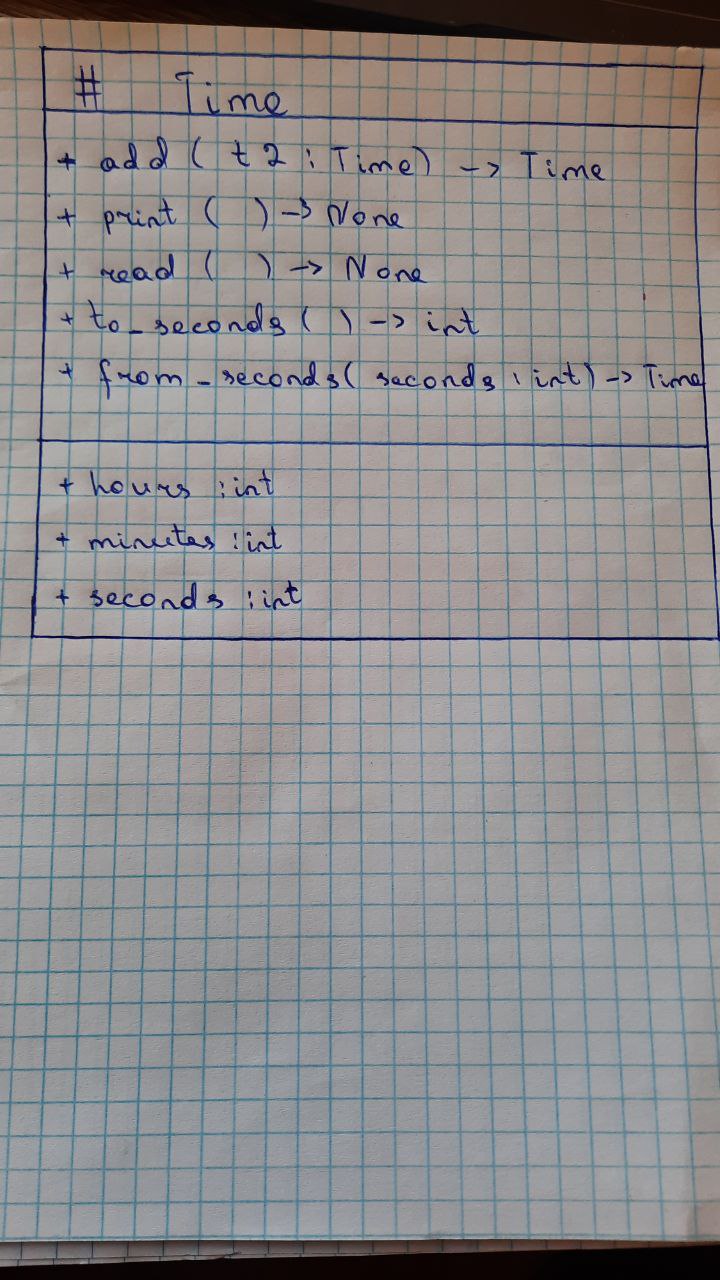 # Time
+ add ( t2 : Time) -> Time
+ print ( ) -> None
+ read ( ) -> None
+ to_seconds ( ) -> int
+ from_seconds( seconds : int) -> Time
+ hours : int
+ minutes : int
+ seconds : int